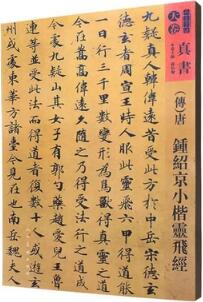 大卷
真書
(傳唐)
鍾紹京小楷靈飛經
九疑真人韓偉遠昔受此方於中岳宋德玄
德玄者周宣王時人服此靈飛六甲得道能
一日行三千里數變形為鳥獸得真靈之道
今在嵩高偉遠久隨之乃得受法行之道成
今處九疑山其女子有郭勺藥趙愛兒王魯
連等並受此法而得道者復數十人或遊玄
州或處東華方諸臺今見在也南岳魏夫人